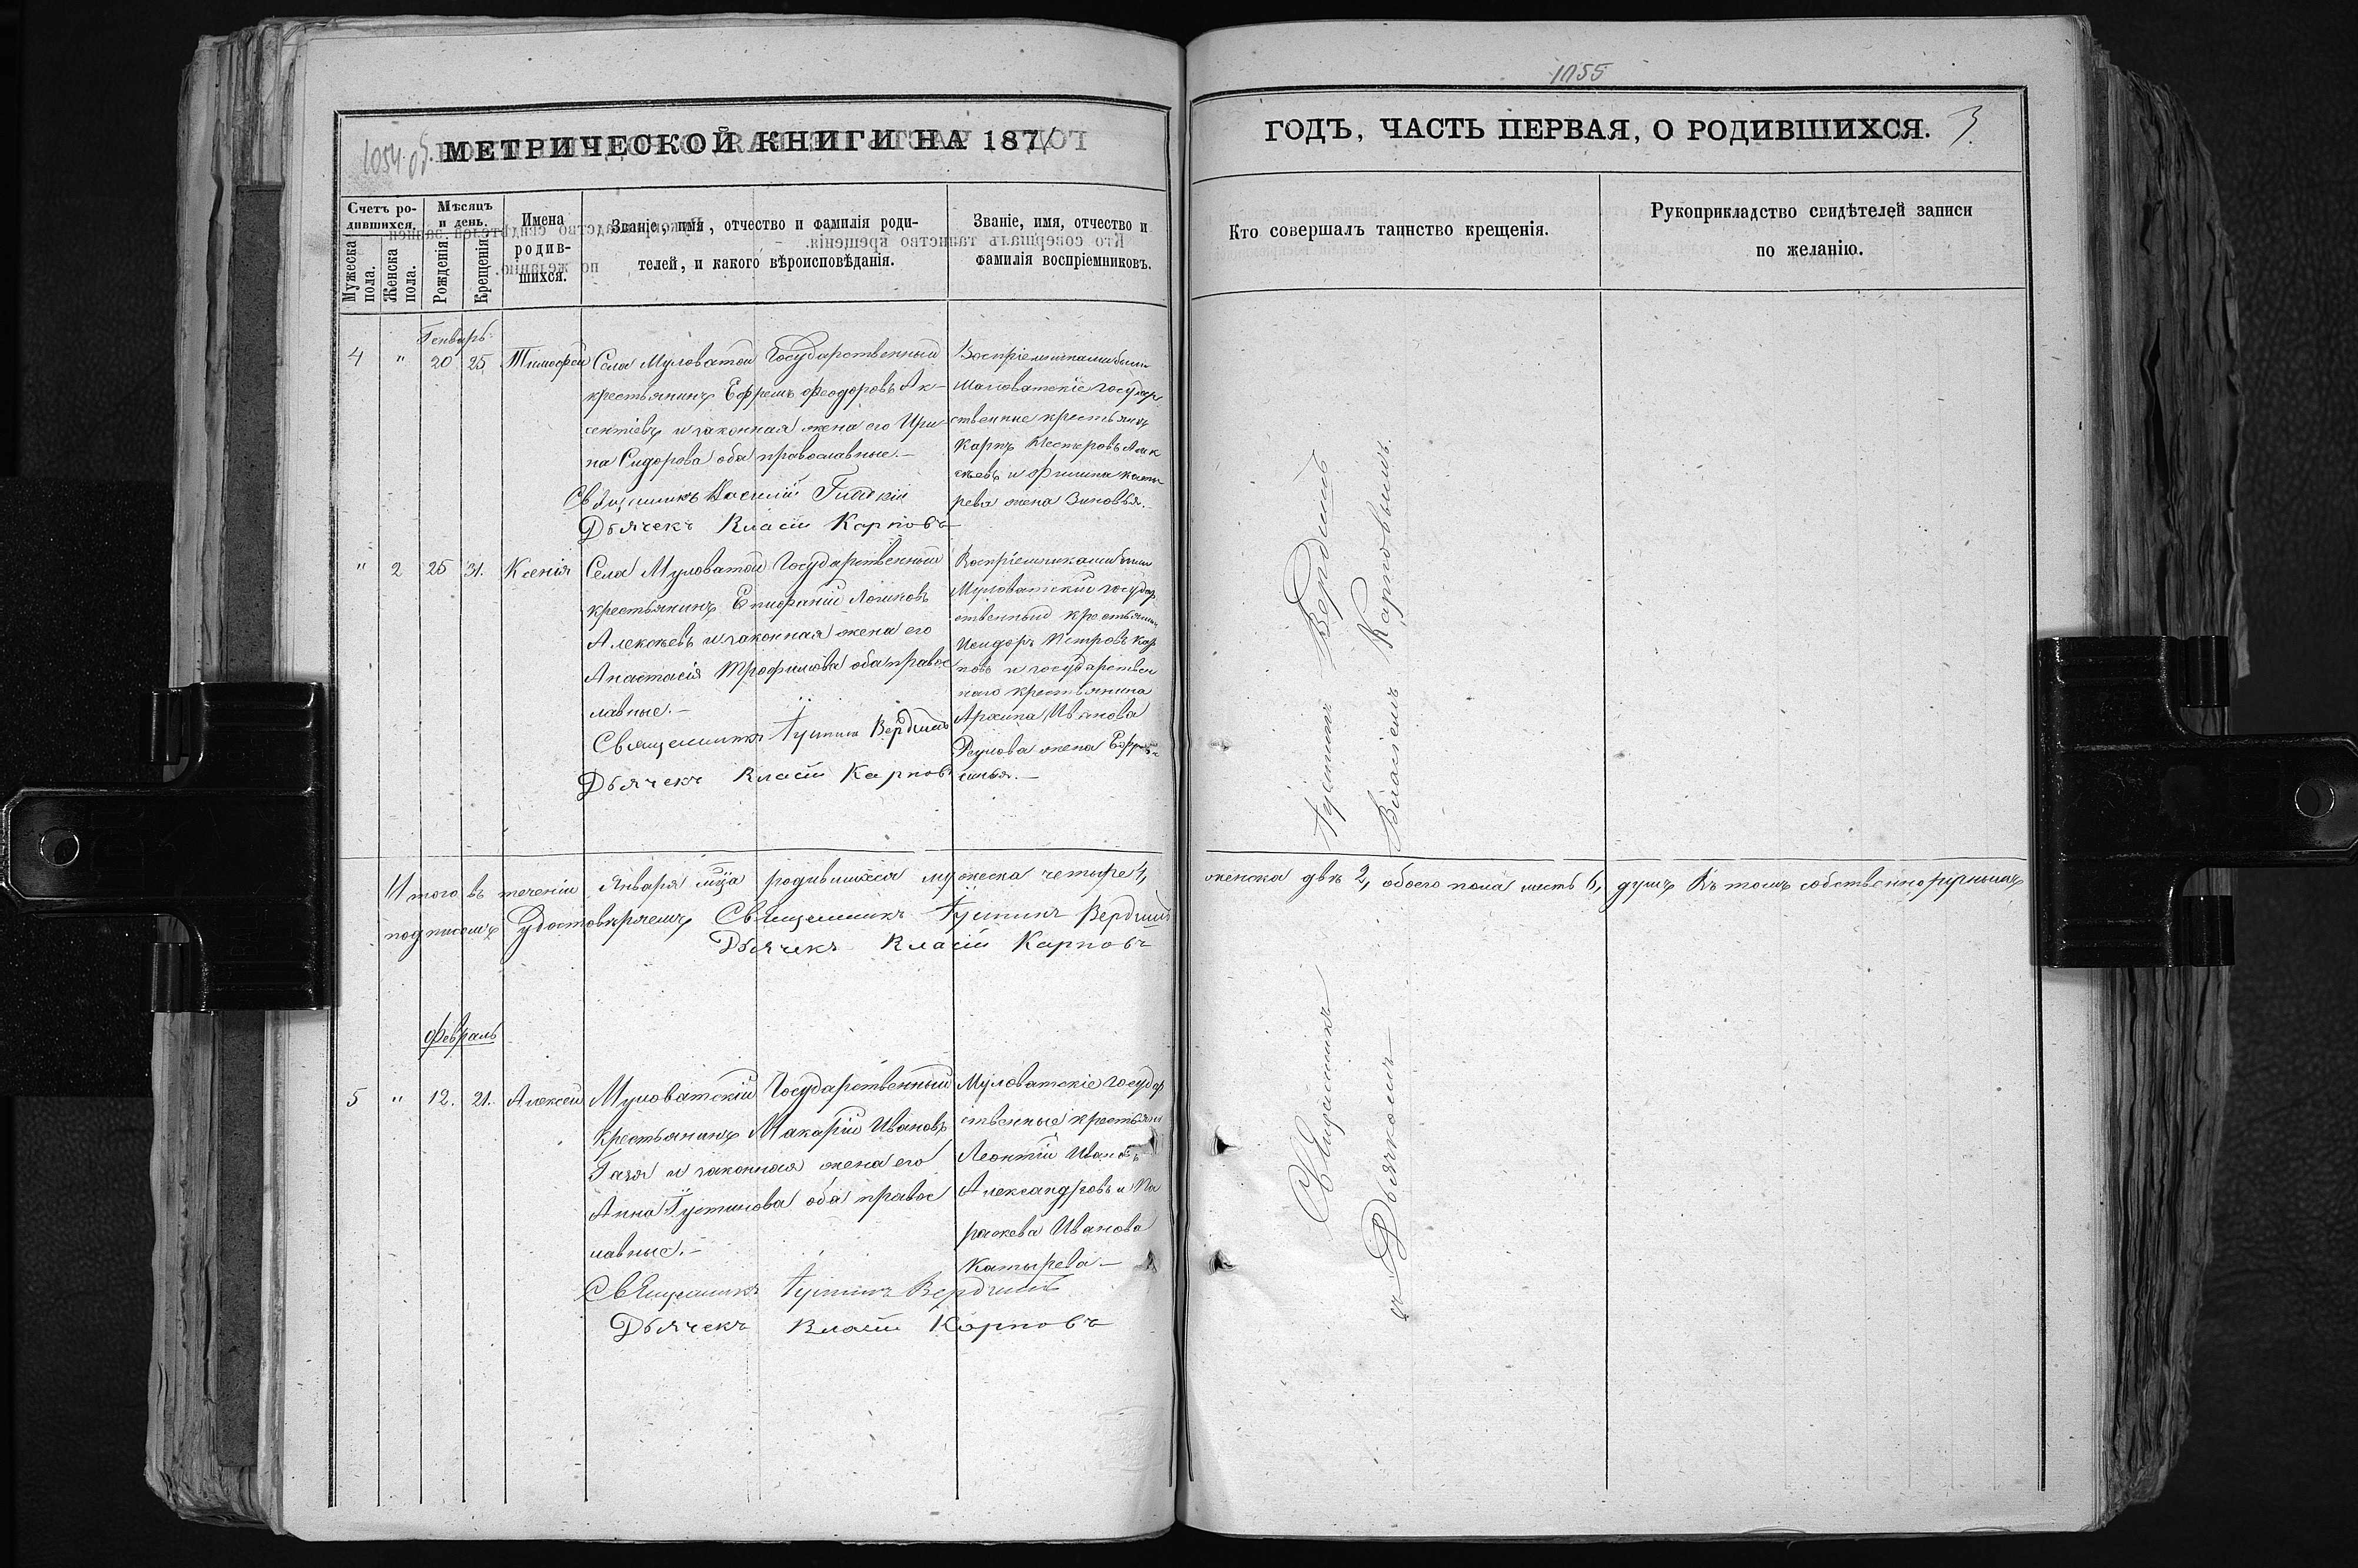 1055
1054 об.
МЕТРИЧЕСКОЙ КНИГИ НА 1871
ГОДЪ, ЧАСТЬ ПЕРВАЯ, О РОДИВШИХСЯ.
3.
Счетъ родившихся.
Мужеска пола.
Женска пола.
Мѣсяцъ и день.
Рожденія.
Крещенія.
Имена родившихся.
Званіе, имя, отчество и фамилія родителей, и какого вѣроисповѣданія.
Званіе, имя, отчество и фамилія воспріемниковъ.
Кто совершалъ таинство крещенія.
Рукоприкладство свидѣтелей записи
по желанію.
Генварь:
4 " 20 25 Тимофей
Села Муловатой Государственный
крестьянинъ Ефремъ Феодоровъ Ак-
сентіевъ и законная жена его Ири
на Сидорова оба православные.-
Священникъ Василій
Дьячекъ Власій Карповъ
Воспріемниками были
Государ
ственные крестьяне
Карпъ Нестеровъ Алек
сѣевъ и Филипа Каты
рева жена Зиновья.-
" 2 25 31. Ксенія
Села Муловатой Государственный
крестьянинъ Епифаній Логиновъ
Алексѣевъ и законная жена его
Анастасія Трофимова оба правос
лавные.-
Священникъ Іустинъ
Дьячекъ Власій Карповъ
Воспріемниками были
Муловатскій государ
ственный крестьянинъ
Исидоръ Петровъ Кар
повъ и государствен
наго крестьянина
Архипа Иванова
жена Ефро
синья.-
Итого въ теченіи Января мца родившихся мужеска четыре 4, женска двѣ 2, обоего пола шесть 6, душъ Въ томъ собственноручнымъ
подписомъ удостовѣряемъ Священникъ Іустинъ
Дьячекъ Власій Карповъ
Февраль
5 " 12. 21. Алексей
Муловатскій Государственный
крестьянинъ Макарій Ивановъ
и законная жена его
Анна Іустинова оба правос
лавные.-
Священникъ Іустинъ
Дьячекъ Власій Карповъ
Муловатскіе государ
ственные крестьяне
Леонтій Ивановъ
Александровъ и Па
раскева Иванова
Катырева-
Священникъ Іустинъ
съ Дьячкомъ Власіемъ Карповымъ.